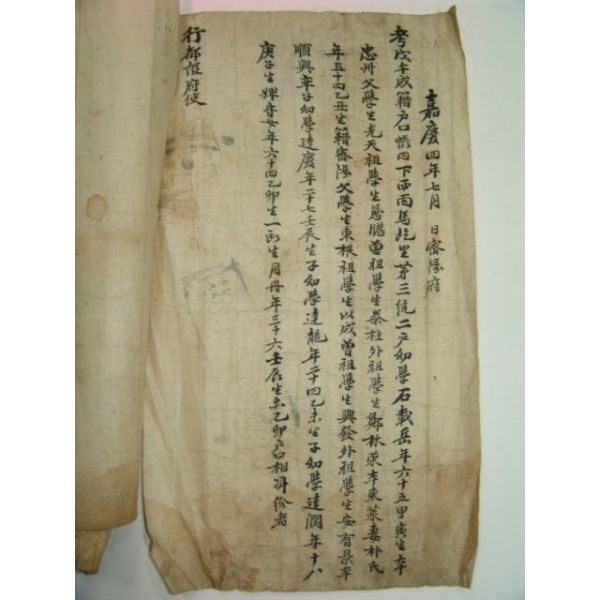 嘉慶四年七月 日密陽府
考戊午成籍戶口帳內下西面馬 里第三統二戶幼學石載岳年六十五甲寅生本
忠州父學生光天祖學生 曾祖學生泰柱外祖學生鄭林 本東萊妻朴氏
年五十四乙丑生籍密陽父學生東根祖學生以成曾祖學生興發外祖學生安有 本
順興率子幼學達慶年二十七壬辰生子幼學達龍年二十四乙未生子幼學達潤年十八
庚子生婢 女年六十四乙卯生一所生月丹年三十六壬辰生 乙卯戶口相准給者
行都護府使